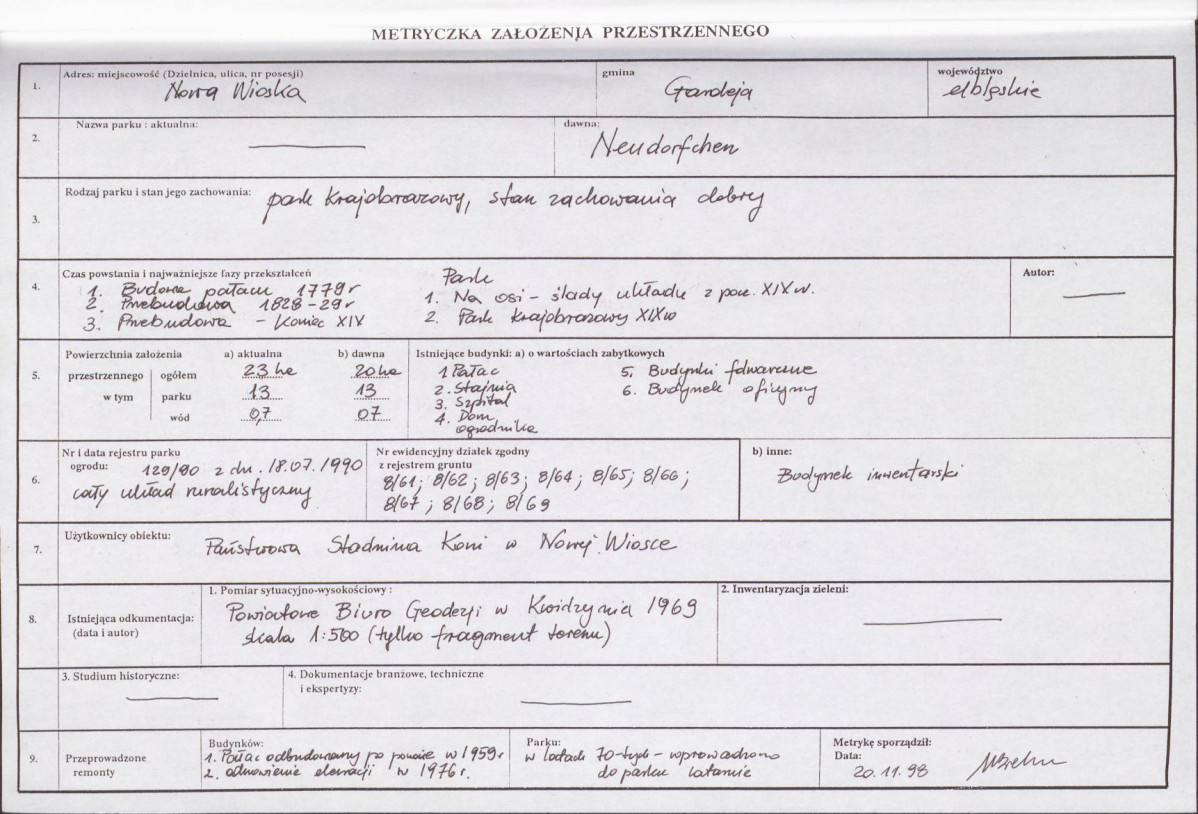 METRYCZKA ZAŁOŻENIA PRZESTRZENNEGO
1.
Adres: miejscowość (Dzielnica, ulica, nr posesji)
Nowa Wioska
gmina
Gardeja
województwo
elbląskie
2.
Nazwa parku : aktualna:
dawna:
Neudorfchen
3.
Rodzaj parku i stan jego zachowania:
park krajobrazowy, stan zachowania dobry
4.
Czas powstania i najważniejsze fazy przekształceń
1. Budowa pałacu 1779 r
2. Przebudowa 1828-29 r
3. Przebudowa - koniec XIX
Park
1. Na osi - ślady układu z pocz. XIX w.
2. Park krajobrazowy XIX w
Autor:
5.
Powierzchnia założenia a) aktualna b) dawna
przestrzennego ogółem 23 ha 20 ha
w tym parku 13 13
wód 0,7 07
Istniejące budynki: a) o wartościach zabytkowych
1 Pałac
2. Stajnia
3. Szpital
4. Dom
ogrodnika
5. Budynki folwarczne
6. Budynek oficyny
6.
Nr i data rejestru parku
ogrodu: 129/90 z dn. 18.07.1990
cały układ ruralistyczny
Nr ewidencyjny działek zgodny
z rejestrem gruntu
8/61; 8/62; 8/63; 8/64; 8/65; 8/66;
8/67; 8/68; 8/69
b) inne:
Budynek inwentarski
7.
Użytkownicy obiektu:
Państwowa Stadnina Koni w Nowej Wiosce
8.
Istniejąca odkumentacja:
(data i autor)
1. Pomiar sytuacyjno-wysokościowy :
Powiatowe Biuro Geodezji w Kwidzynia 1969
skala 1:500 (tylko fragment terenu)
2. Inwentaryzacja zieleni:
3. Studium historyczne:
4. Dokumentacje branżowe, techniczne
i ekspertyzy:
9.
Przeprowadzone
remonty
Budynków:
1. Pałac odbudowany po pożarze w 1959 r
2. odnowienie elewacji w 1976 r.
Parku:
w latach 70-tych - wprowadzono
do parku latarnie
Metrykę sporządził:
Data:
20.11.98